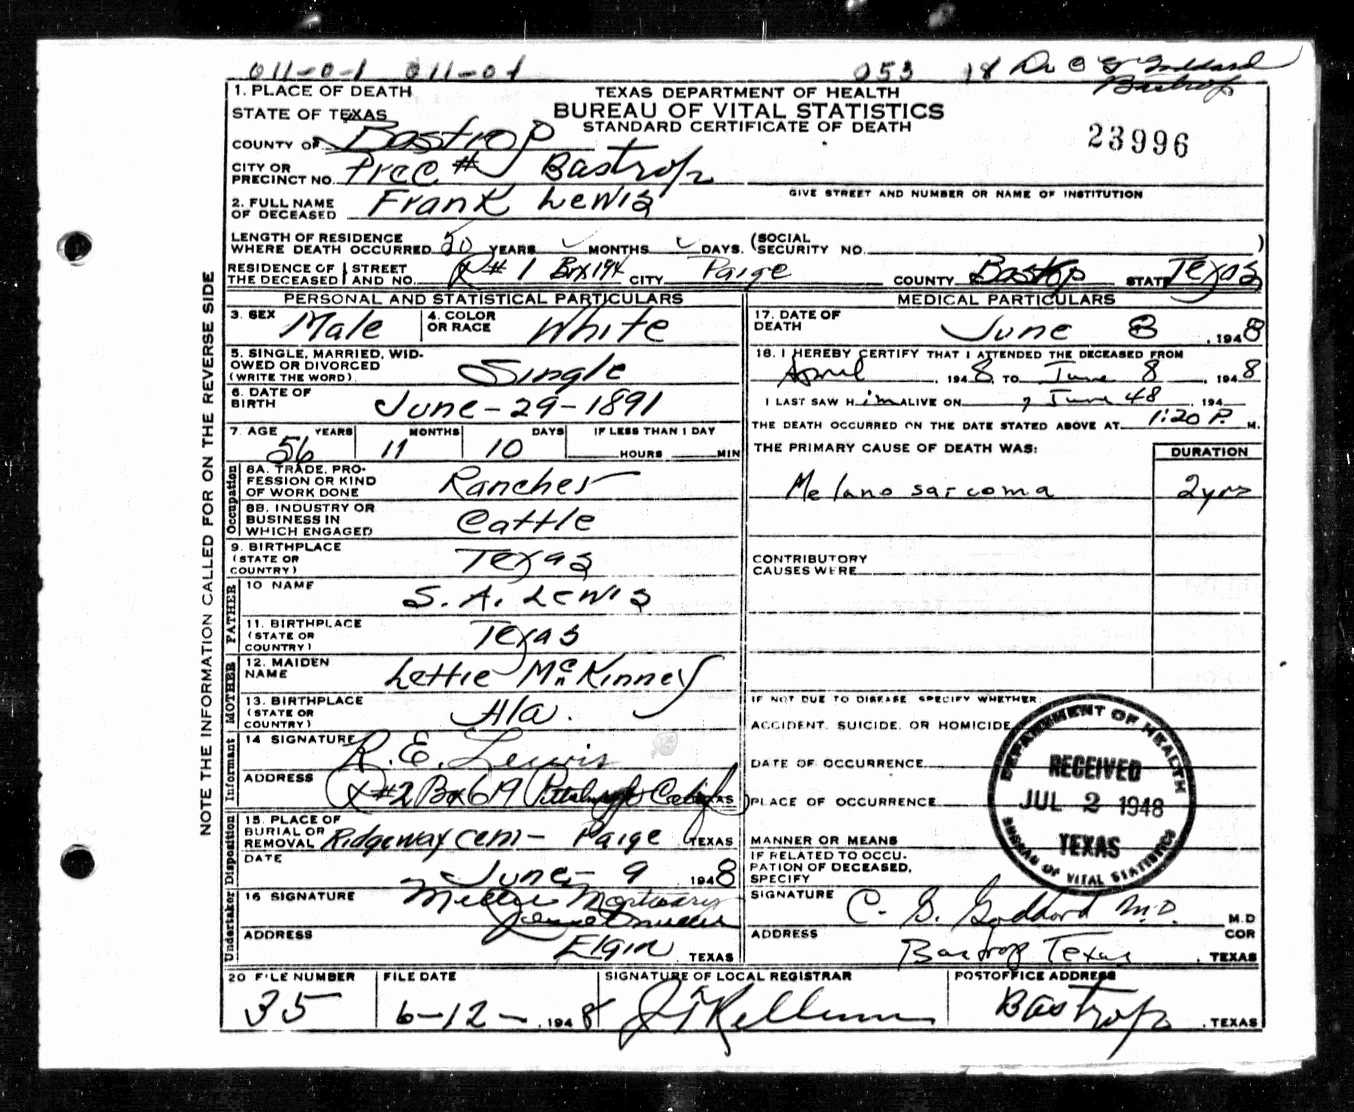 011-0-1 011-01 053 18 Dr C G Goddard
Bastrop
1. PLACE OF DEATH
STATE OF TEXAS
TEXAS DEPARTMENT OF HEALTH
BUREAU OF VITAL STATISTICS
STANDARD CERTIFICATE OF DEATH
23996
COUNTY OF Bastrop
CITY OR PRECINCT NO. Prec # Bastrop
GIVE STREET AND NUMBER OR NAME OF INSTITUTION
2. FULL NAME OF DECEASED Frank Lewis
LENGTH OF RESIDENCE WHERE DEATH OCCURRED 50 YEARS MONTHS DAYS. (SOCIAL SECURITY NO. )
RESIDENCE OF THE DECEASED STREET AND NO. R#1 Box 194 CITY Paige COUNTY Bastrop STATE Texas
PERSONAL AND STATISTICAL PARTICULARS
3. SEX Male 4. COLOR OR RACE White
5. SINGLE, MARRIED, WIDOWED OR DIVORCED (WRITE THE WORD) Single
6. DATE OF BIRTH June-29-1891
7. AGE 56 YEARS 11 MONTHS 10 DAYS IF LESS THAN 1 DAY HOURS MIN
Occupation
8A. TRADE, PROFESSION OR KIND OF WORK DONE Rancher
8B. INDUSTRY OR BUSINESS IN WHICH ENGAGED Cattle
9. BIRTHPLACE (STATE OR COUNTRY) Texas
FATHER
10 NAME S. A. Lewis
11. BIRTHPLACE (STATE OR COUNTRY) Texas
MOTHER
12. MAIDEN NAME Lettie McKinney
13. BIRTHPLACE (STATE OR COUNTRY) Ala.
Informant
14 SIGNATURE R. E. Lewis
ADDRESS R#2 Box 619 Pittsburgh Calif
Disposition
15. PLACE OF BURIAL OR REMOVAL Ridgeway cem- Paige TEXAS
DATE June- 9 1948
Undertaker
16 SIGNATURE Mortuary
ADDRESS Elgin TEXAS
MEDICAL PARTICULARS
17. DATE OF DEATH June 8, 1948
18. I HEREBY CERTIFY THAT I ATTENDED THE DECEASED FROM
April, 1948 TO June 8, 1948
I LAST SAW H im ALIVE ON 7 June 48 194
THE DEATH OCCURRED ON THE DATE STATED ABOVE AT 1:20 P. M.
THE PRIMARY CAUSE OF DEATH WAS: DURATION
Melano sarcoma 2 yrs
CONTRIBUTORY CAUSES WERE
IF NOT DUE TO DISEASE, SPECIFY WHETHER:
ACCIDENT, SUICIDE, OR HOMICIDE
DATE OF OCCURRENCE
PLACE OF OCCURRENCE
MANNER OR MEANS
IF RELATED TO OCCUPATION OF DECEASED, SPECIFY
DEPARTMENT OF HEALTH
RECEIVED
JUL 2 1948
TEXAS
BUREAU OF VITAL STATISTICS
SIGNATURE C. G. Goddard M.D. M.D
COR
ADDRESS Bastrop Texas, TEXAS
20 FILE NUMBER 35
FILE DATE 6-12-, 1948
SIGNATURE OF LOCAL REGISTRAR
POSTOFFICE ADDRESS Bastrop, TEXAS
NOTE THE INFORMATION CALLED FOR ON THE REVERSE SIDE